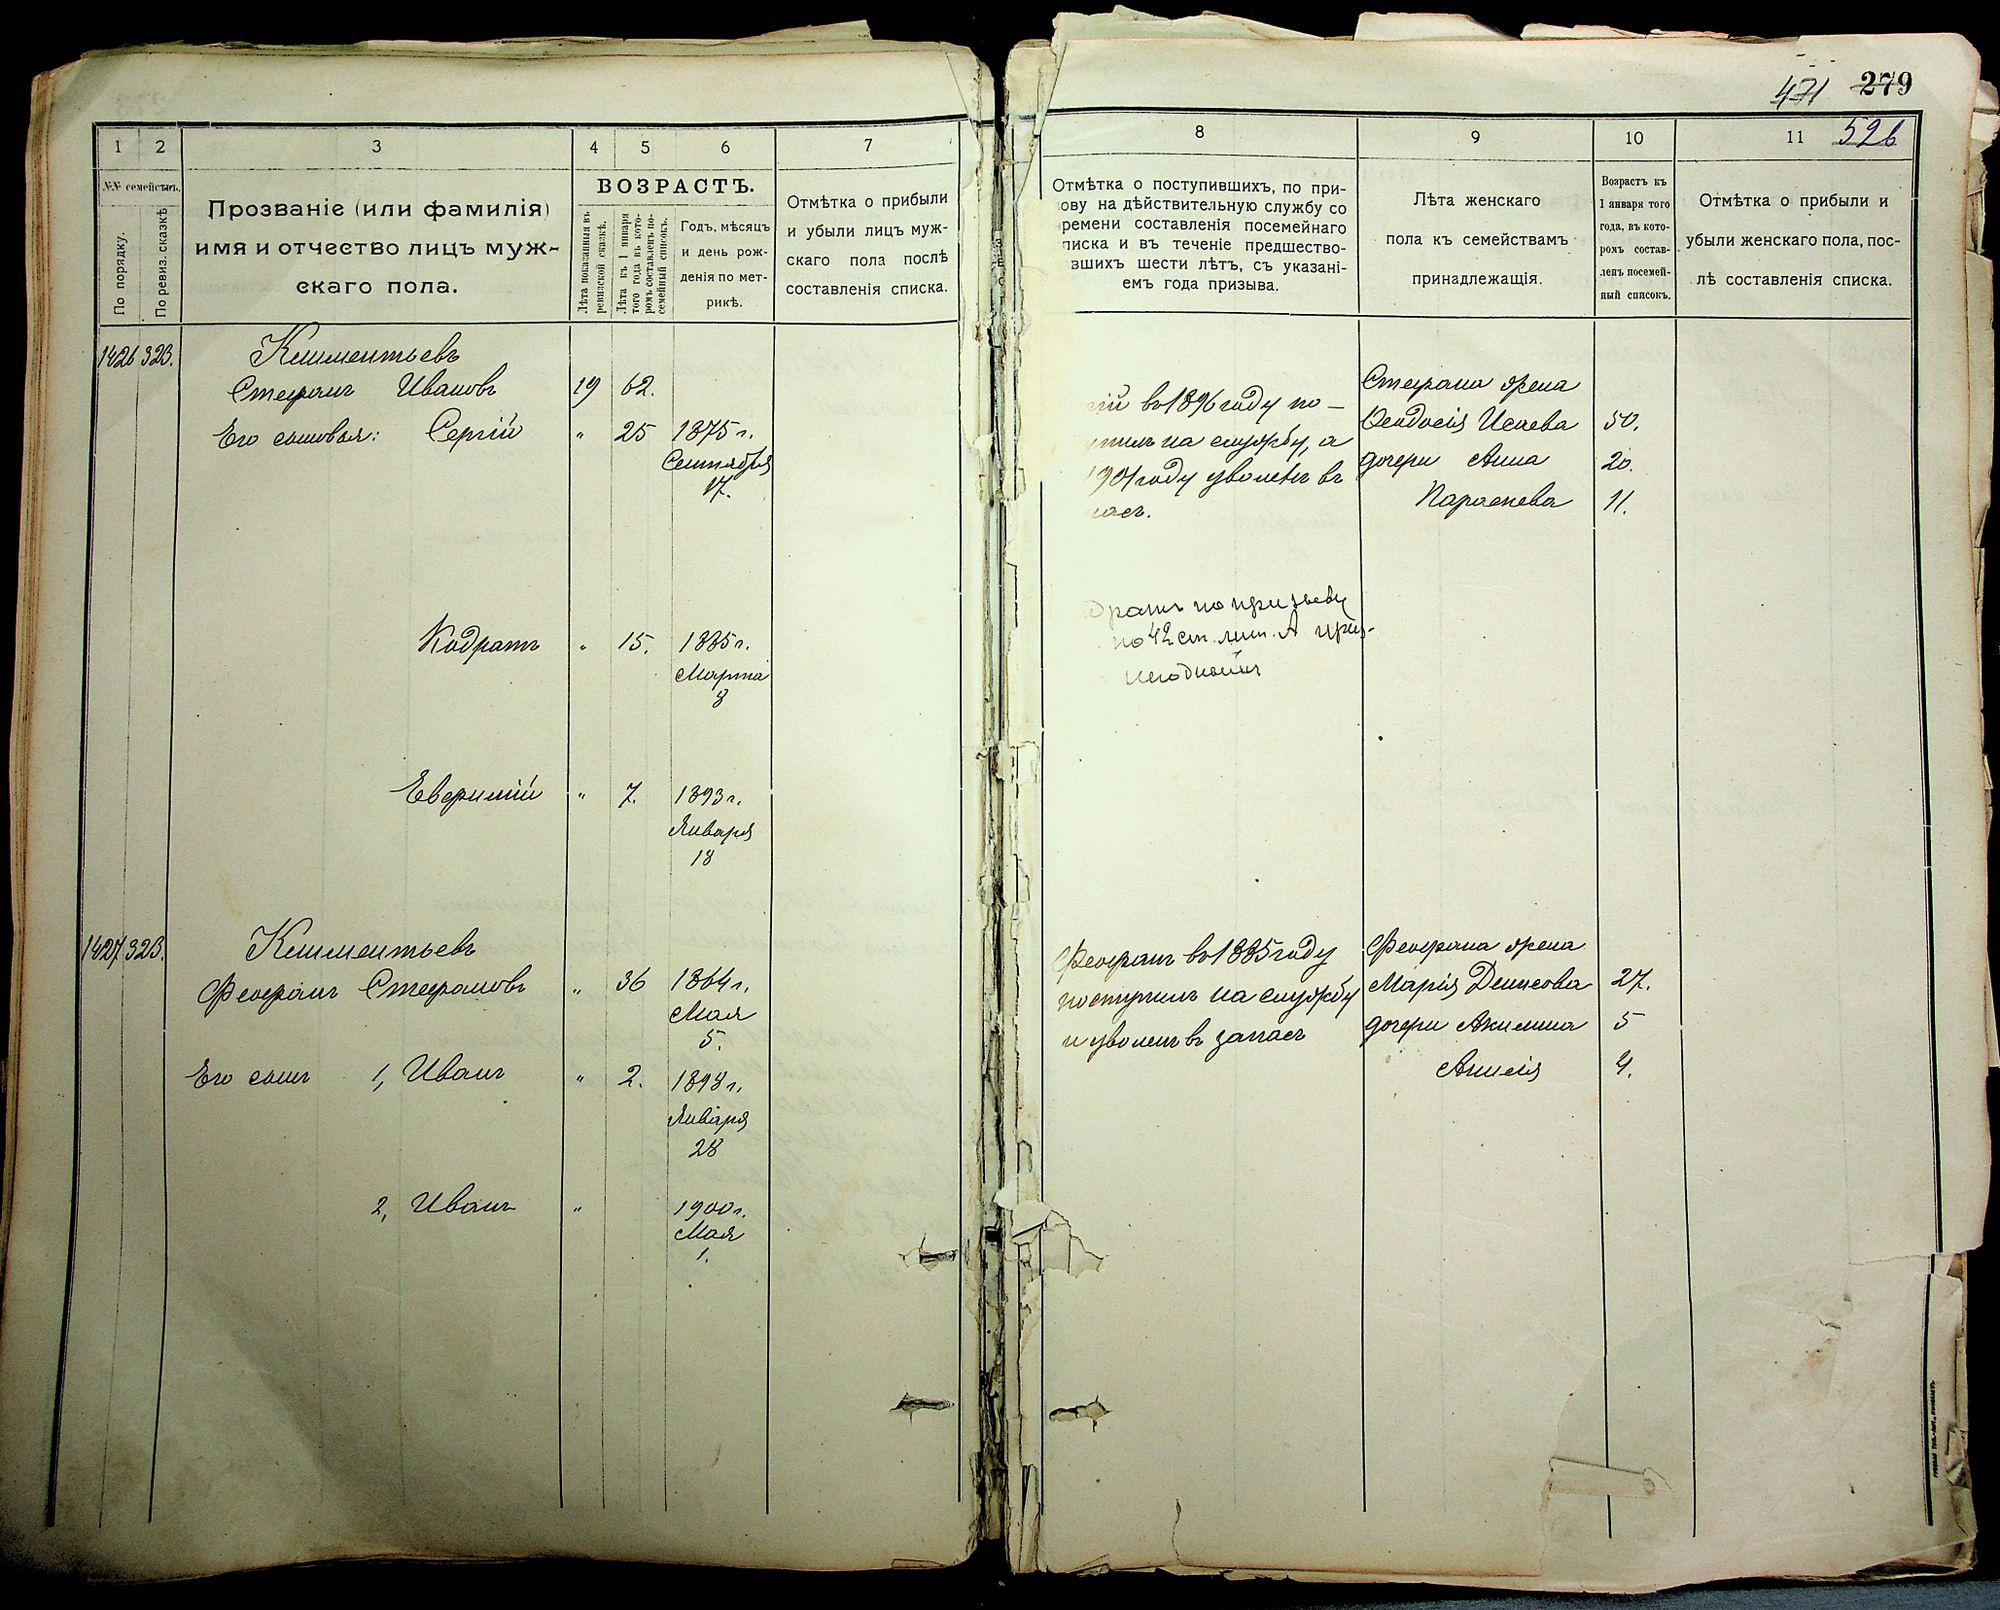 1
2
3
4
5
6
7
№№ семействъ.
По порядку.
По ревиз. сказкѣ
Прозваніе (или фамилія)
имя и отчество лицъ муж-
скаго пола.
ВОЗРАСТЪ.
Лѣта показанныя въ
ревизской сказкѣ.
Лѣта къ 1 января
того года въ кото-
ромъ составленъ по-
семейный списокъ.
Годъ, мѣсяцъ
и день рож-
денія по мет-
рикѣ.
Отмѣтка о прибыли
и убыли лицъ муж-
скаго пола послѣ
составленія списка.
1426 323. Климентьевъ
Стефанъ Ивановъ 19 62.
Его сыновья: Сергій " 25 1875 г.
Сентября
17.
Кодратъ " 15. 1885 г.
Марта
8
Евфимій " 7. 1893 г.
Января
18
1427 323. Климентьевъ
Феофанъ Стефановъ " 36 1864 г.
Мая
5.
Его сынъ 1, Иванъ " 2. 1898 г.
Января
28
2, Иванъ " 1900 г.
Мая
1.
471 279
8
9
10
11 526
Отмѣтка о поступившихъ, по при-
зову на дѣйствительную службу со
времени составленія посемейнаго
списка и въ теченіе предшество-
вшихъ шести лѣтъ, съ указані-
емъ года призыва.
Лѣта женскаго
пола къ семействамъ
принадлежащія.
Возрастъ къ
1 января того
года, въ кото-
ромъ состав-
ленъ посемей-
ный списокъ.
Отмѣтка о прибыли и
убыли женскаго пола, пос-
лѣ составленія списка.
гій въ 1896 году по-
упилъ на службу, а
1901 году уволенъ въ
пасъ.
Стефана жена
Ѳеодосія Исаева 50.
дочери Анна 20.
Параскева 11.
дратъ по призыву
по 42 ст. лит. А приз-
негоднымъ
Феофанъ въ 1885 году
поступилъ на службу
и уволенъ въ запасъ
Феофана жена
Марія Денисова 27.
дочери Акилина 5
Анисія 4.